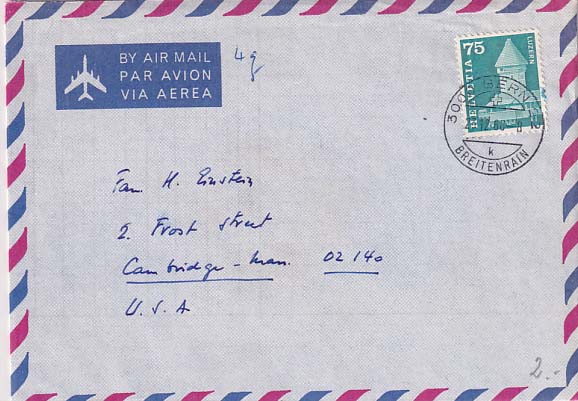 BY AIR MAIL
PAR AVION
VIA AEREA
4g
75
HELVETIA
LUZERN
BREITENRAIN
k
Fam H. Einstein
2. Frost Street
Cambridge - Mass. 02140
U.S.A
2.-